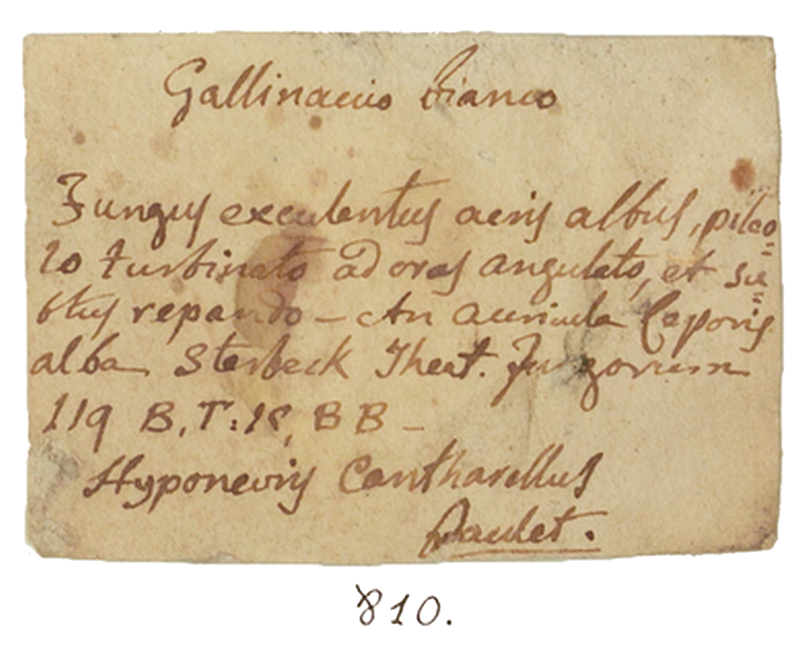 Gallinaccio bianco
Fungus exculentus acris albus, pileo=
lo turbinato ad oras angulato, et su=
btus repando – An auricula Leporis
alba Sterbeck Theat. Fungorum
119 B, T: 15, BB –
Hyponevris Cantharellus
Paulet.
810.